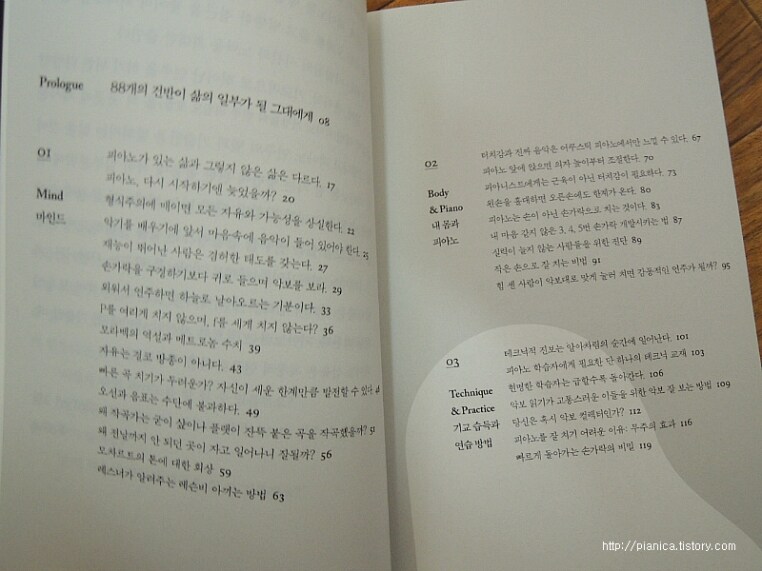 Prologue 88개의 건반이 삶의 일부가 될 그대에게 08
01 피아노가 있는 삶과 그렇지 않은 삶은 다르다. 17
피아노, 다시 시작하기엔 늦었을까? 20
Mind 형식주의에 매이면 모든 자유와 가능성을 상실한다. 22
마인드 악기를 배우기에 앞서 마음속에 음악이 들어 있어야 한다. 25
재능이 뛰어난 사람은 겸허한 태도를 갖는다. 27
손가락을 구경하기보다 귀로 들으며 악보를 보라. 29
외워서 연주하면 하늘로 날아오르는 기분이다. 33
p를 여리게 치지 않으며, f를 세게 치지 않는다? 36
모라벡의 역설과 메트로놈 수치 39
자유는 결코 방종이 아니다. 43
빠른 곡 치기가 두려운가? 자신이 세운 한계만큼 발전할 수 있다.
오선과 음표는 수단에 불과하다. 49
왜 작곡가는 굳이 샵이나 플랫이 잔뜩 붙은 곡을 작곡했을까?
왜 전날까지 안 되던 곳이 자고 일어나니 잘될까? 56
모차르트의 톤에 대한 회상 59
레스너가 알려주는 레슨비 아끼는 방법 63
02 터치감과 진짜 음악은 어쿠스틱 피아노에서만 느낄 수 있다. 67
피아노 앞에 앉으면 의자 높이부터 조절한다. 70
Body 피아니스트에게는 근육이 아닌 터치감이 필요하다. 73
& Piano 왼손을 홀대하면 오른손에도 한계가 온다. 80
내 몸과 피아노는 손이 아닌 손가락으로 치는 것이다. 83
피아노 내 마음 같지 않은 3, 4, 5번 손가락 개발시키는 법 87
실력이 늘지 않는 사람들을 위한 진단 89
작은 손으로 잘 치는 비법 91
힘 센 사람이 악보대로 맞게 눌러 치면 감동적인 연주가 될까? 95
03 테크닉적 진보는 알아차림의 순간에 일어난다. 101
피아노 학습자에게 필요한 단 하나의 테크닉 교재 103
Technique 현명한 학습자는 급할수록 돌아간다. 107
& Practice 악보 읽기가 고통스러운 이들을 위한 악보 잘 보는 방법 109
기교 습득과 당신은 혹시 악보 컬렉터인가? 112
연습 방법 피아노를 잘 치기 어려운 이유: 무주의 효과 116
빠르게 돌아가는 손가락의 비밀 119
http://pianica.tistory.com